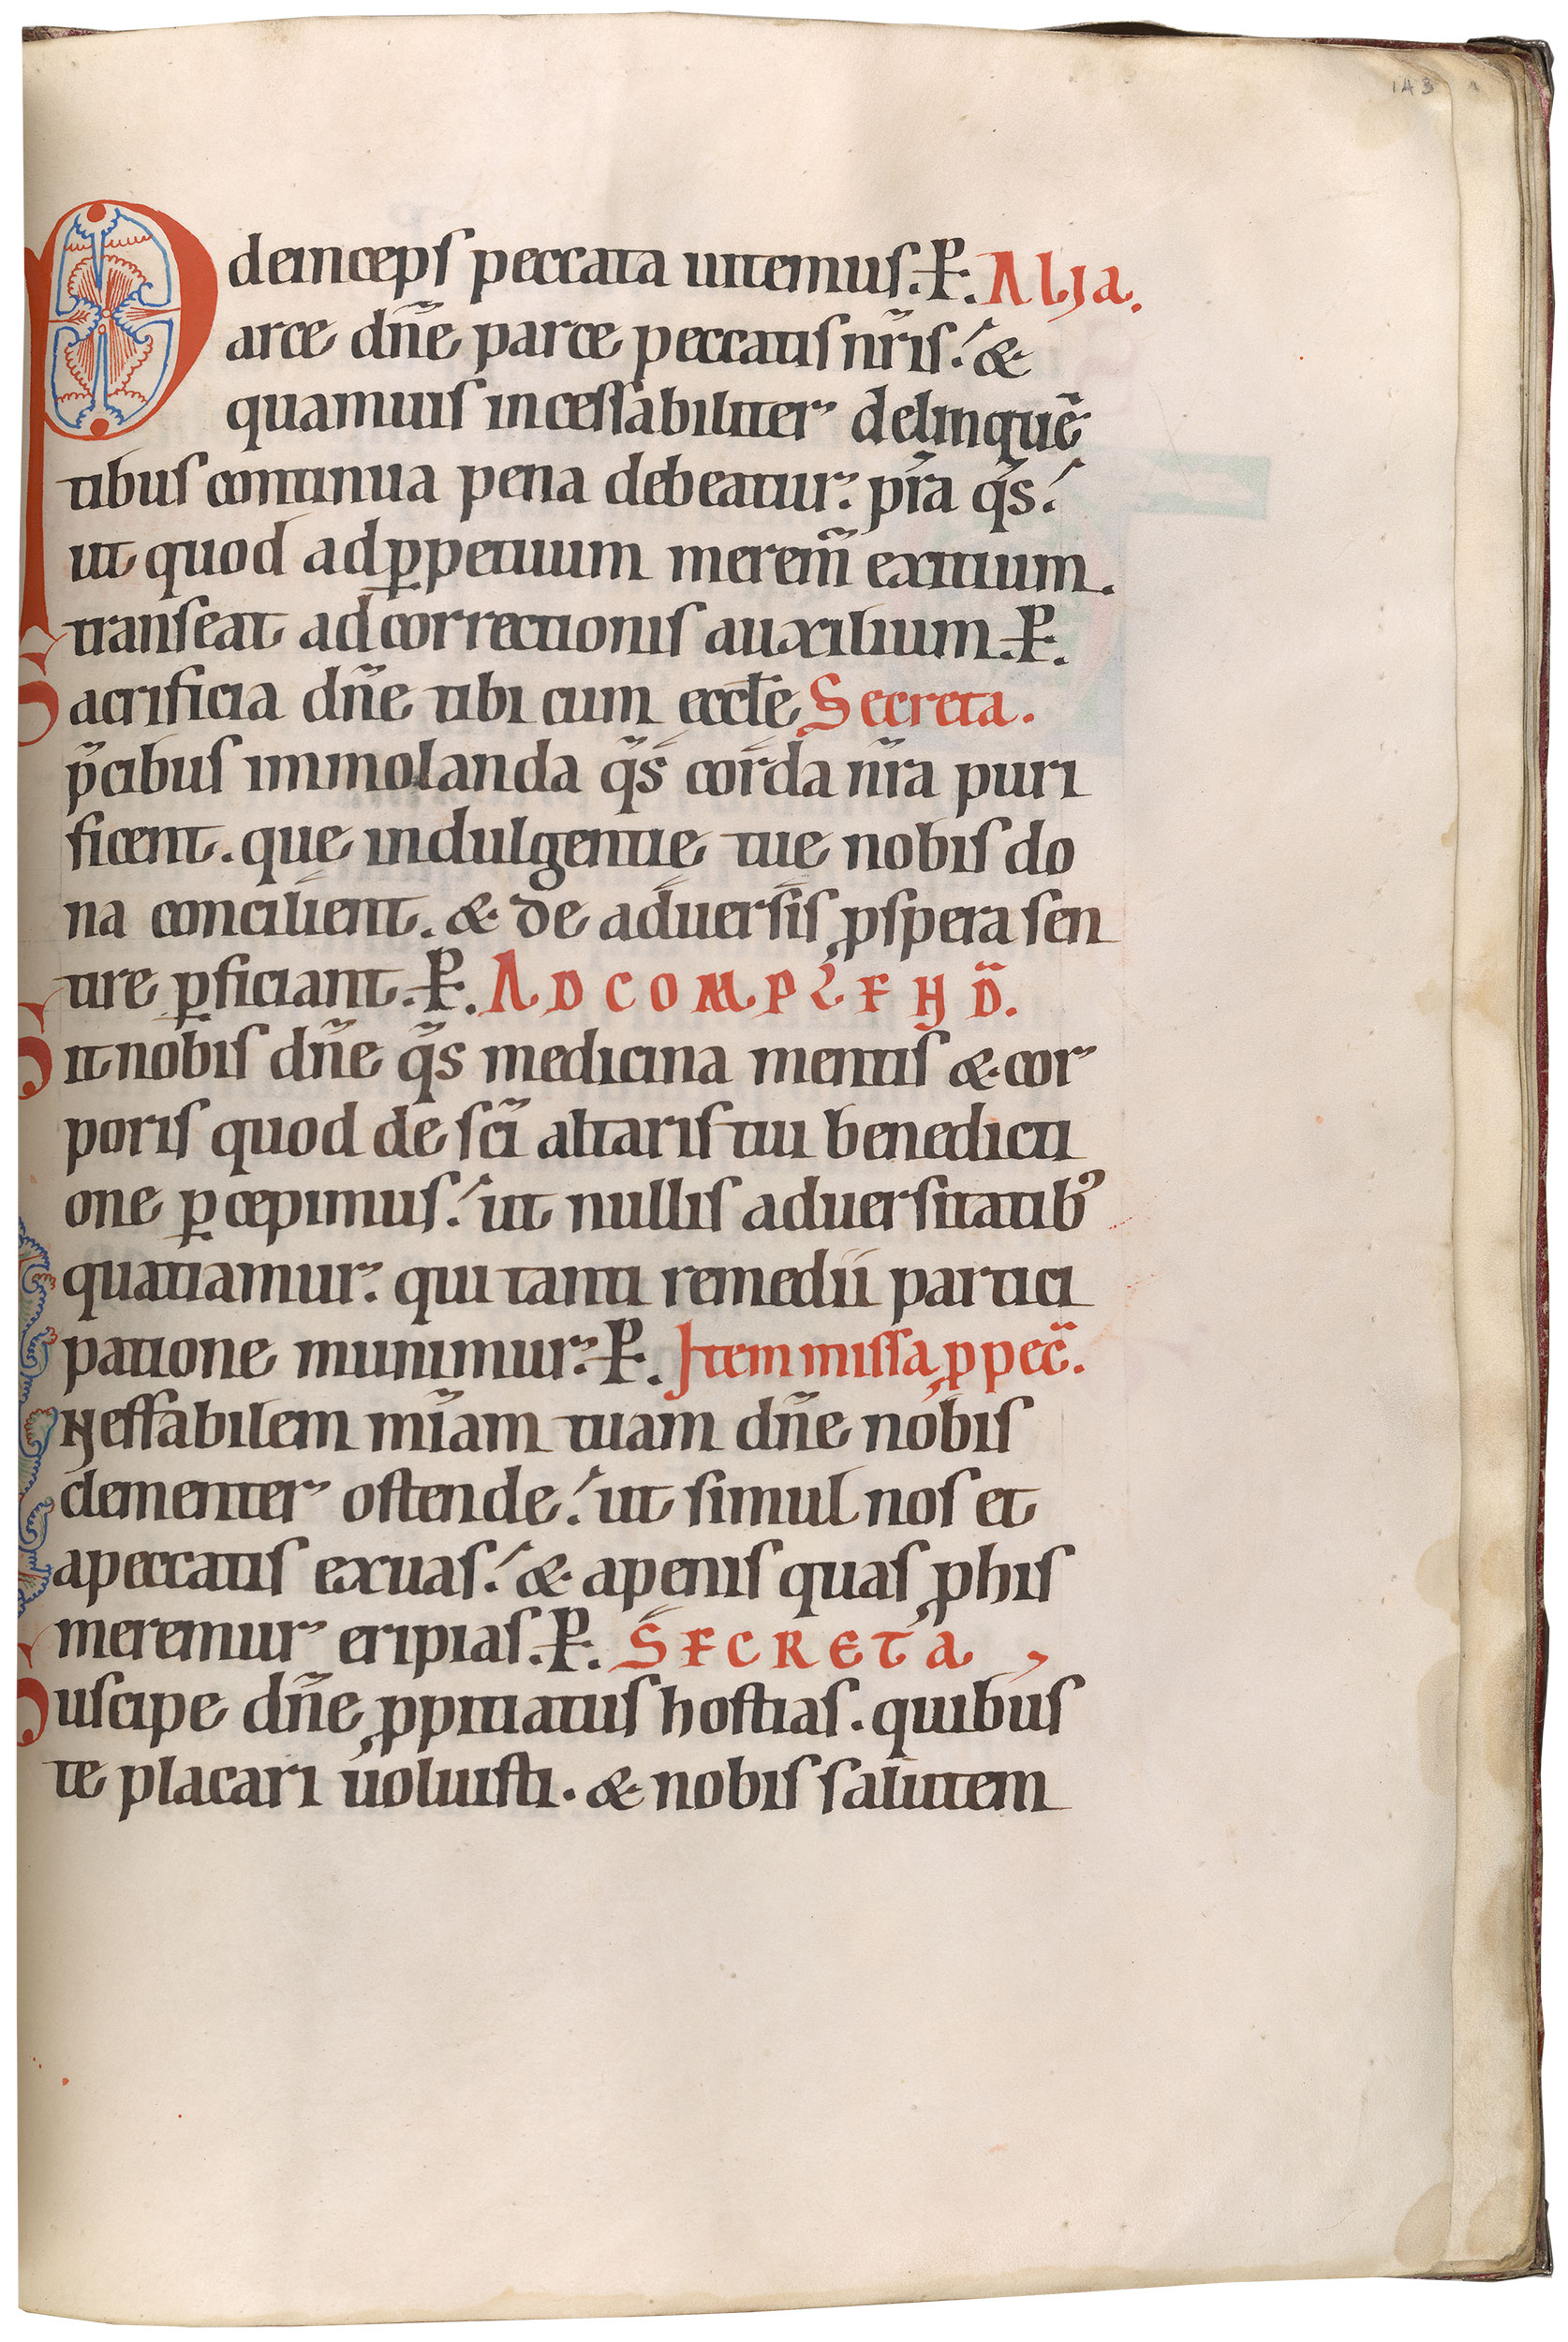 143
deinceps peccata uitemus. P. Alia.
Parce dñe parce peccatis nr̃is. &
quamuis incessabiliter delinquẽ
tibus continua pena debeatur. pr̃a q̃s.
ut quod ad ꝑpetuum merem̃ exitium.
transeat ad correctionis auxilium. P.
Sacrificia dñe tibi cum ęccłe Secreta.
p̃cibus immolanda q̃s corda nr̃a puri
ficent. que indulgentię tue nobis do
na concilient. & de aduersis ꝓspera sen
tire ꝑficiant. P. AD COMPLEND̃.
Sit nobis dñe q̃s medicina mentis & cor
poris quod de sc̃i altaris tui benedicti
one ꝑcepimus. ut nullis aduersitatibꝰ
quatiamur. qui tanti remedii partici
patione munimur. P. Item missa ꝓ pec̃.
Ineffabilem mĩam tuam dñe nobis
clementer ostende. ut simul nos et
a peccatis exuas. & a penis quas ꝓ his
meremur eripias. P. SECRETA
Suscipe dñe ꝓpitiatus hostias. quibus
te placari uoluisti. & nobis salutem